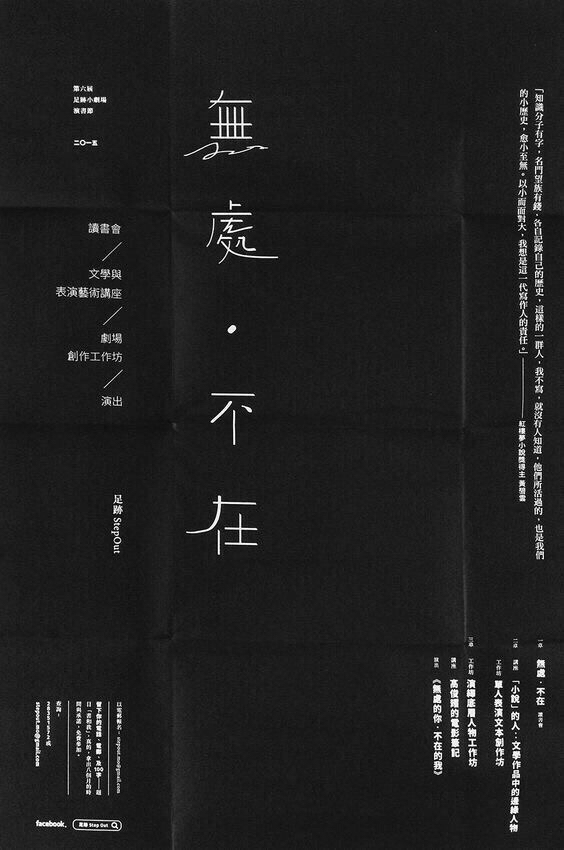 「知識分子有字，名門望族有錢，各自記錄自己的歷史，這樣的一群人，我不寫，就沒有人知道，他們所活過的，也是我們
的小歷史，愈小至無。以小而面對大，我想是這一代寫作人的責任。」——紅樓夢小說獎得主 黃碧雲
無處・不在
第六屆
足跡小劇場
演書節
二〇一五
讀書會
／
文學與
表演藝術講座
／
劇場
創作工作坊
／
演出
足跡 StepOut
一章 無處・不在 讀書會
二章 講座 「小說」的人：文學作品中的邊緣人物
工作坊 單人表演文本創作坊
三章 工作坊 演繹底層人物工作坊
講座 高俊耀的電影筆記
演出 《無處的你・不在的我》
以電郵報名，stepout.mo@gmail.com
留下你的電話、電郵、及100字——題
目「書和我」，真的，拿出八個月的時
間與承諾，免費參加。
查詢，
28351572 或
stepout.mo@gmail.com
facebook.
足跡 Step Out